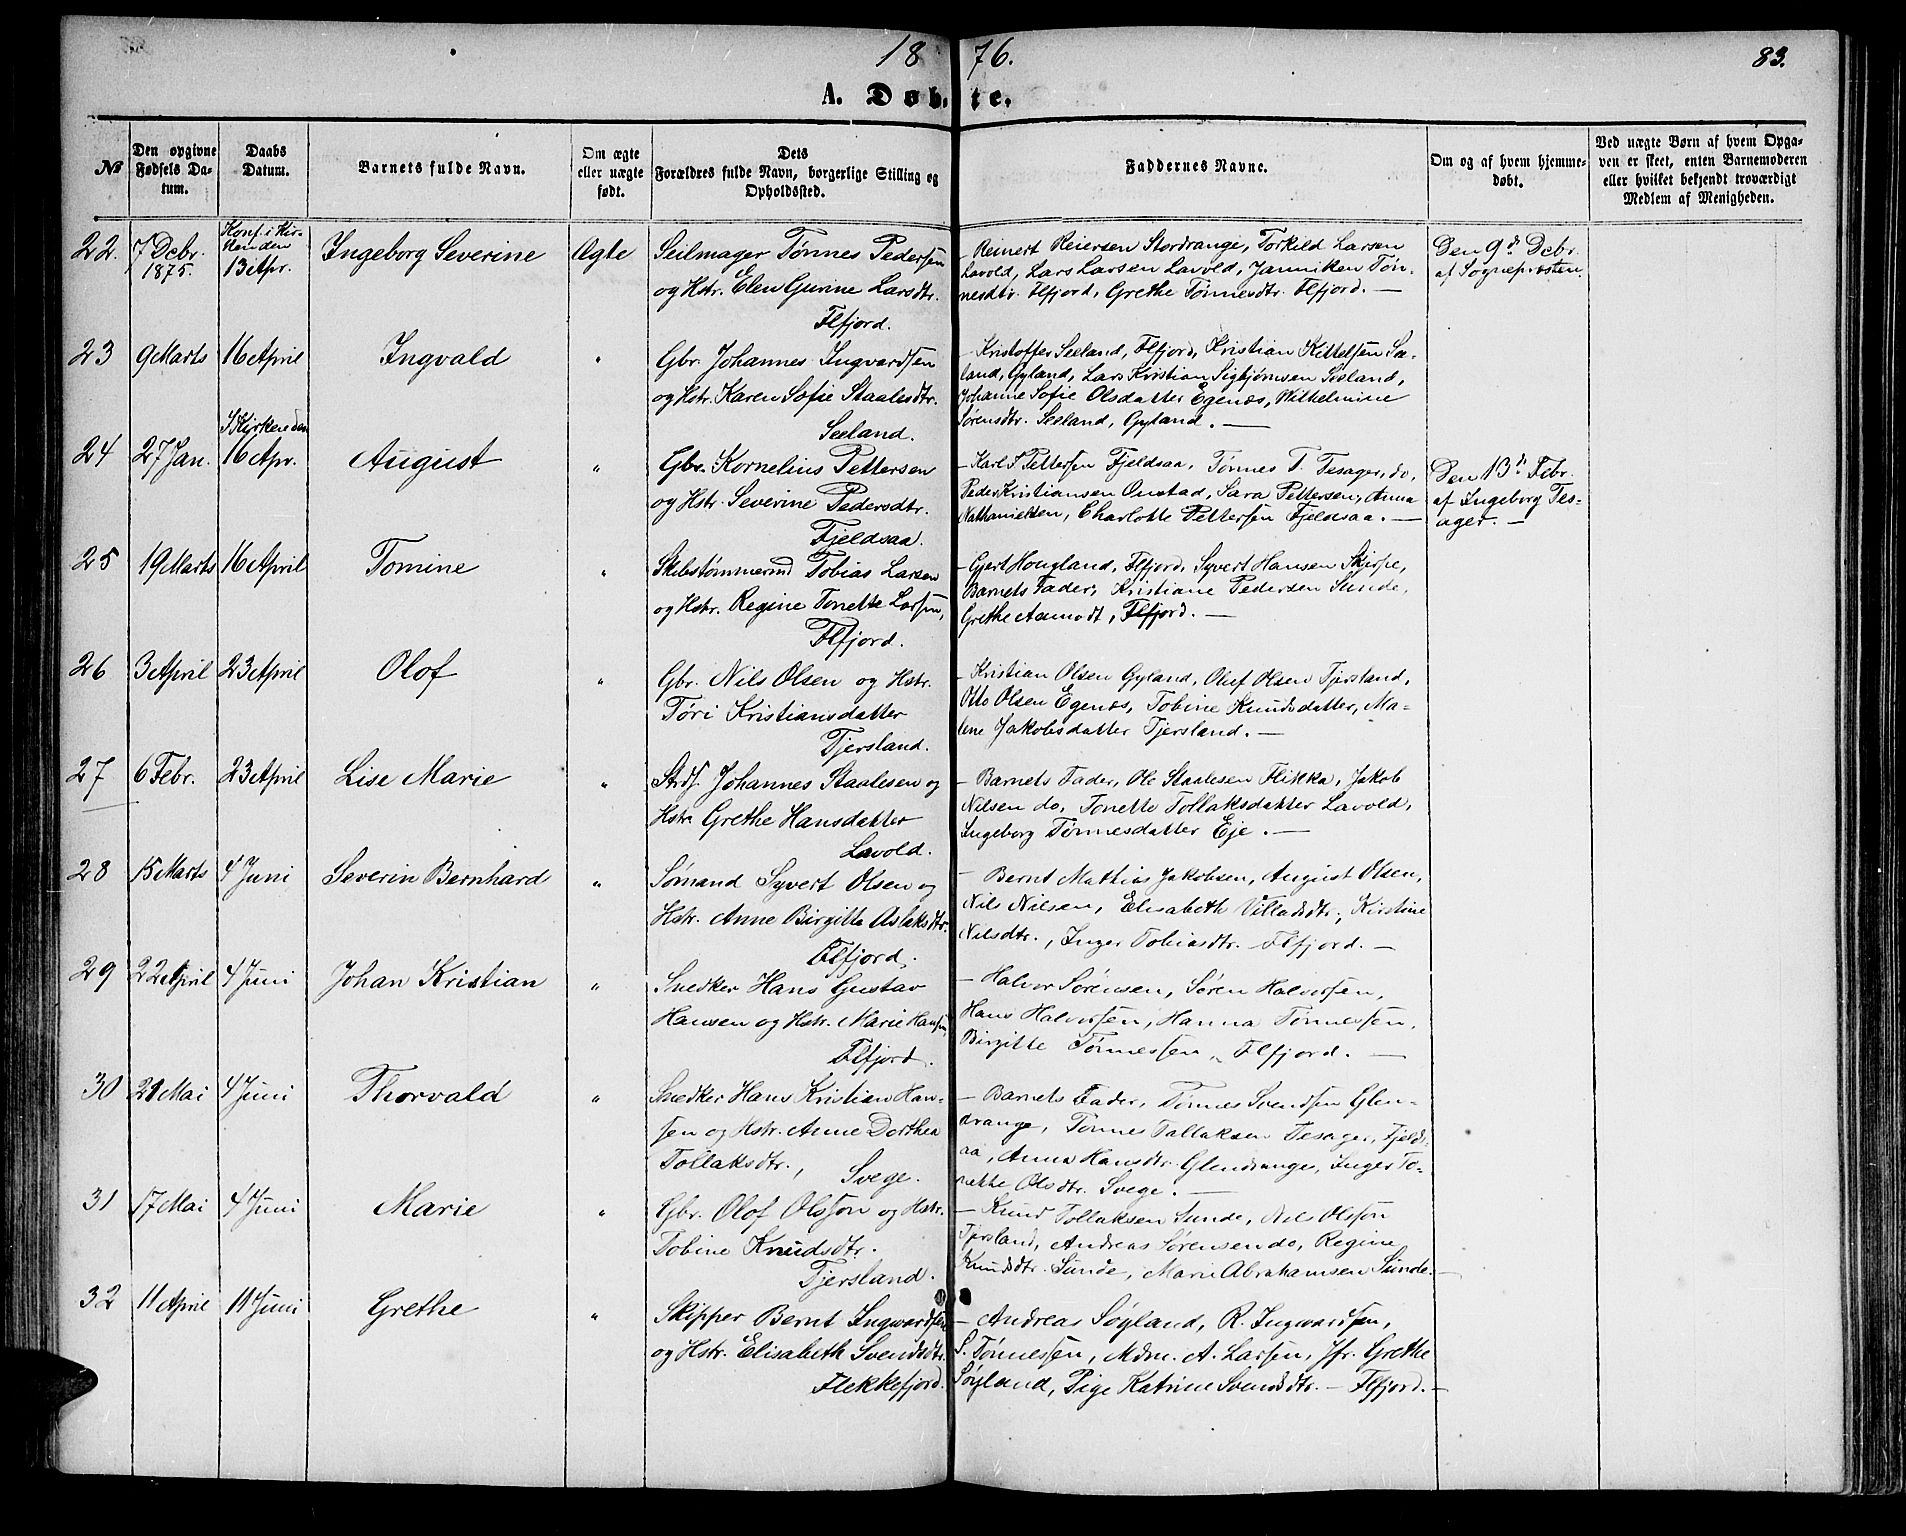 18 76. 83.
A. Døb- te.
No
Den opgivne Fødsels Datum.
Daabs Datum.
Barnets fulde Navn.
Om ægte eller uægte født.
Dets Forældres fulde Navn, borgerlige Stilling og Opholdssted.
Faddernes Navne.
Om og af hvem hjemmedøbt.
Ved uægte Børn af hvem Opgaven er skeet, enten Barnemoderen eller hvilket bekjendt troværdigt Medlem af Menigheden.
22. 7 Debr. 1875. Konf. i Kirken den 13 Apr. Ingeborg Severine Ægte
Seilmager Tønnes Pedersen
og Hstr. Elen Gurine Larsdtr.
Flfjord.
- Reinert Reiersen Stordrange, Torkild Larsen
Lavold, Lars Larsen Lavold, Janniken Tøn-
nesdtr. Flfjord, Grethe Tønnesdtr. Flfjord. -
Den 9d Debr.
af Sognepræsten.
23 9 Marts 16 April Ingvald "
Gbr. Johannes Ingvardsen
og Hstr. Karen Sofie Staalesdtr.
Seeland.
- Kristoffer Seeland, Flfjord, Kristian Kittelsen Sæ-
land, Gyland, Lars Kristian Sigbjørnsen Seeland,
Johanne Sofie Olsdatter Egenæs, Wilhelmine
Sørensdtr. Seeland, Gyland. -
24 27 Jan. I Kirken den 16 Apr. August "
Gbr. Kornelius Pettersen
og Hstr. Severine Pedersdtr.
Fjeldsaa.
- Karl P Pettersen Fjeldsaa, Tønnes T. Tesager, do,
Peder Kristiansen Onstad, Sara Pettersen, Anna
Nathanielsen, Charlotte Pettersen Fjeldsaa. -
Den 13d Febr.
af Ingeborg Tes-
ager. -
25 19 Marts 16 April Tomine "
Skibstømmermd Tobias Larsen
og Hstr. Regine Tonette Larsen,
Flfjord.
- Gjert Hougland, Flfjord, Syvert Hansen Skjerpe,
Barnets Fader, Kristiane Pedersen Sunde,
Grethe Aamodt, Flfjord. -
26 3 April 23 April Olof "
Gbr. Nils Olsen og Hstr.
Tøri Kristiansdatter
Tjersland.
- Kristian Olsen Gyland, Oluf Olsen Tjersland,
Otto Olsen Egenæs, Tobine Knudsdatter, Ma-
lene Jakobsdatter Tjersland. -
27 6 Febr. 23 April Lise Marie "
Strds. Johannes Staalesen og
Hstr Grethe Hansdatter
Lavold.
- Barnets Fader, Ole Staalesen Flikka, Jakob
Nilsen do, Tonette Tollaksdatter Lavold,
Ingeborg Tønnesdatter Eje. -
28 15 Marts 4 Juni Severin Bernhard "
Sømand Syvert Olsen og
Hstr. Anne Birgitte Aslaksdtr.
Flfjord.
- Bernt Mathias Jakobsen, August Olsen,
Nils Nilsen, Elisabeth Villadsdtr., Kirstine
Nilsdtr., Inger Tobiasdtr. Flfjord. -
29 22 April 4 Juni Johan Kristian "
Snedker Hans Gustav
Hansen og Hstr. Marie Hansen,
Flfjord.
- Halvor Sørensen, Søren Halvorsen,
Hans Halvorsen, Hanna Tønnessen,
Birgitte Tønnessen, Flfjord. -
30 21 Mai 4 Juni Thorvald "
Snedker Hans Kristian Han-
sen og Hstr. Anne Dorthea
Tollaksdtr., Svege.
- Barnets Fader, Tønnes Svendsen Glen-
drange, Tønnes Tallaksen Tesager, Fjelds-
aa, Anna Hansdtr. Glendrange, Inger To-
nette Olsdtr. Svege. -
31 17 Mai 4 Juni Marie "
Gbr. Olof Olsson og Hstr.
Tobine Knudsdtr.
Tjersland.
- Knud Tollaksen Sunde, Nils Olsson
Tjersland, Andreas Sørensen do, Regine
Knudsdtr. Sunde, Marie Abrahamsen Sunde. -
32 11 April 11 Juni Grethe "
Skipper Bernt Ingwardsen
og Hstr. Elisabeth Svendsdtr.
Flekkefjord.
- Andreas Søyland, R. Ingwardsen,
S. Tønnessen, Mdm. A. Larsen, Jfr. Grethe
Søyland, Pige Katrine Svendsdtr. - Flfjord. -